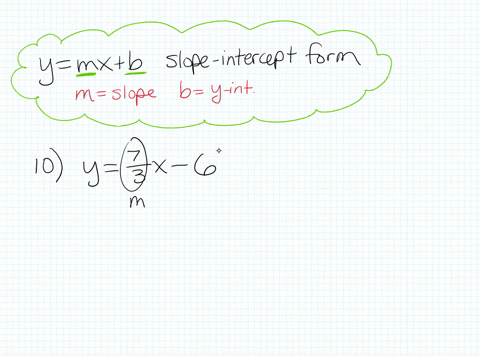 y=mx+b slope-intercept form
m=slope b=y-int.
10) y=7/3x-6
m